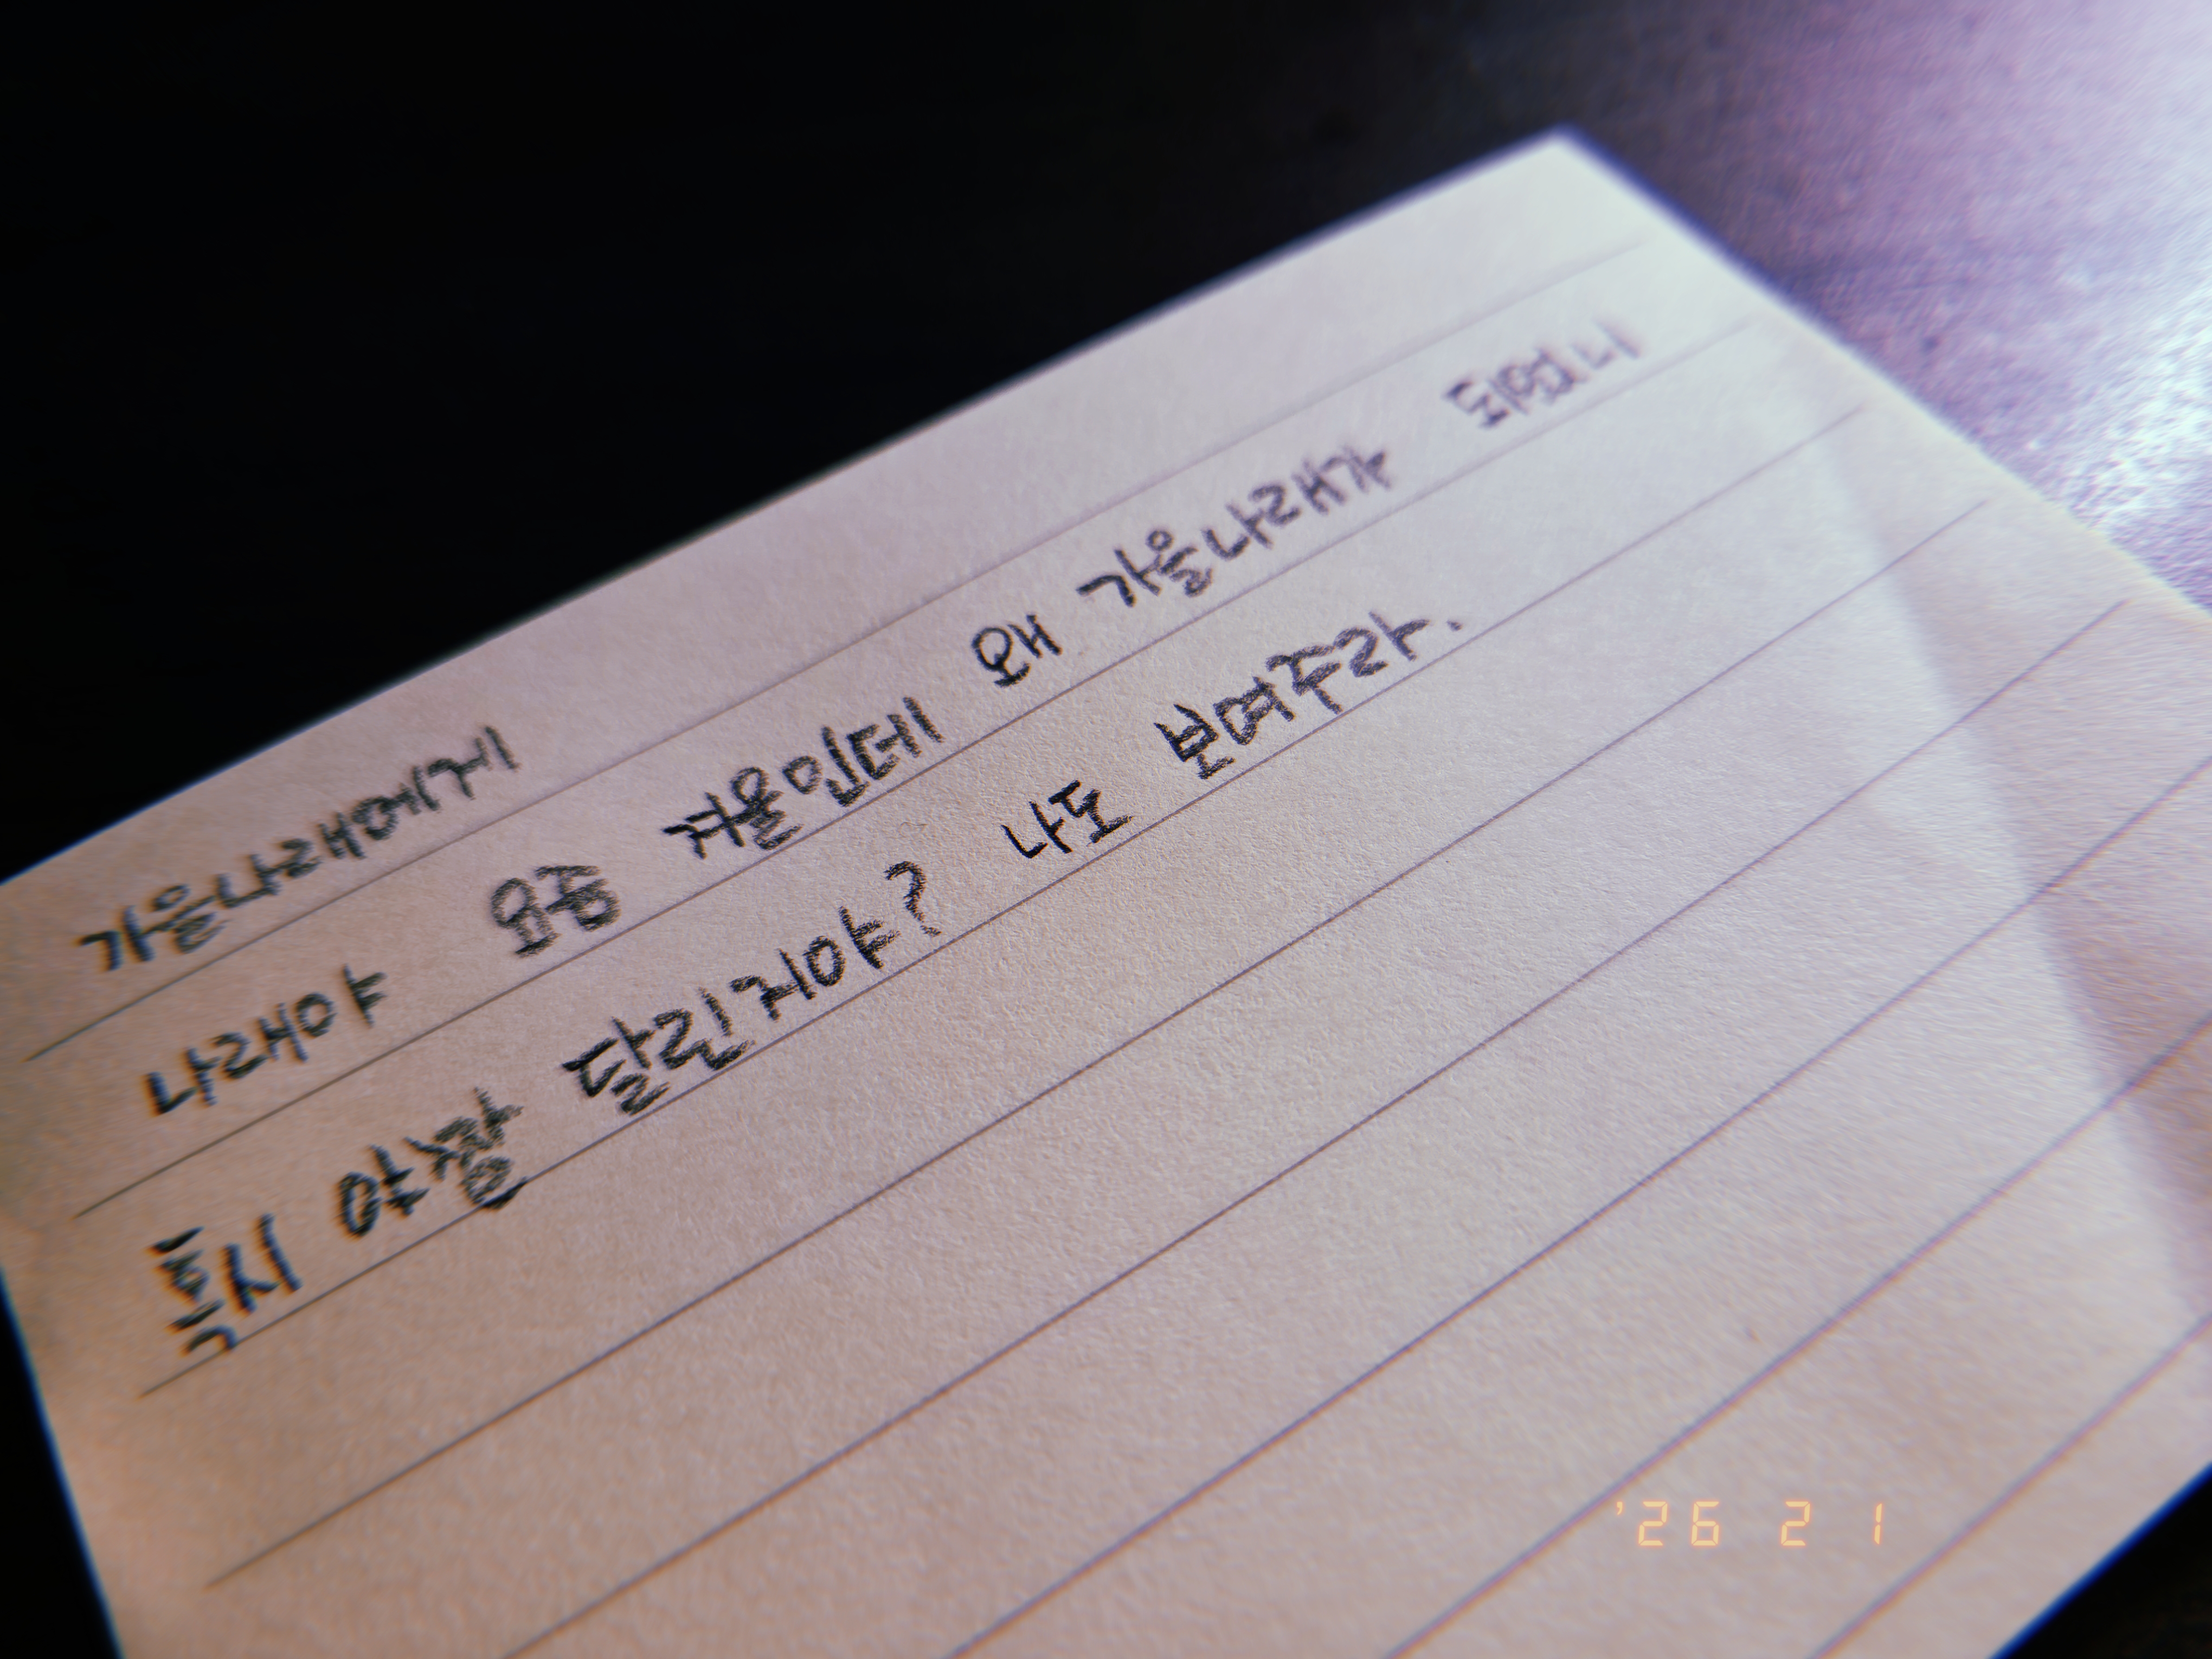 가을나래에게
나래야 요즘 겨울인데 왜 가을나래가
혹시 달린거야? 나도 보여주라.
'26 2 1